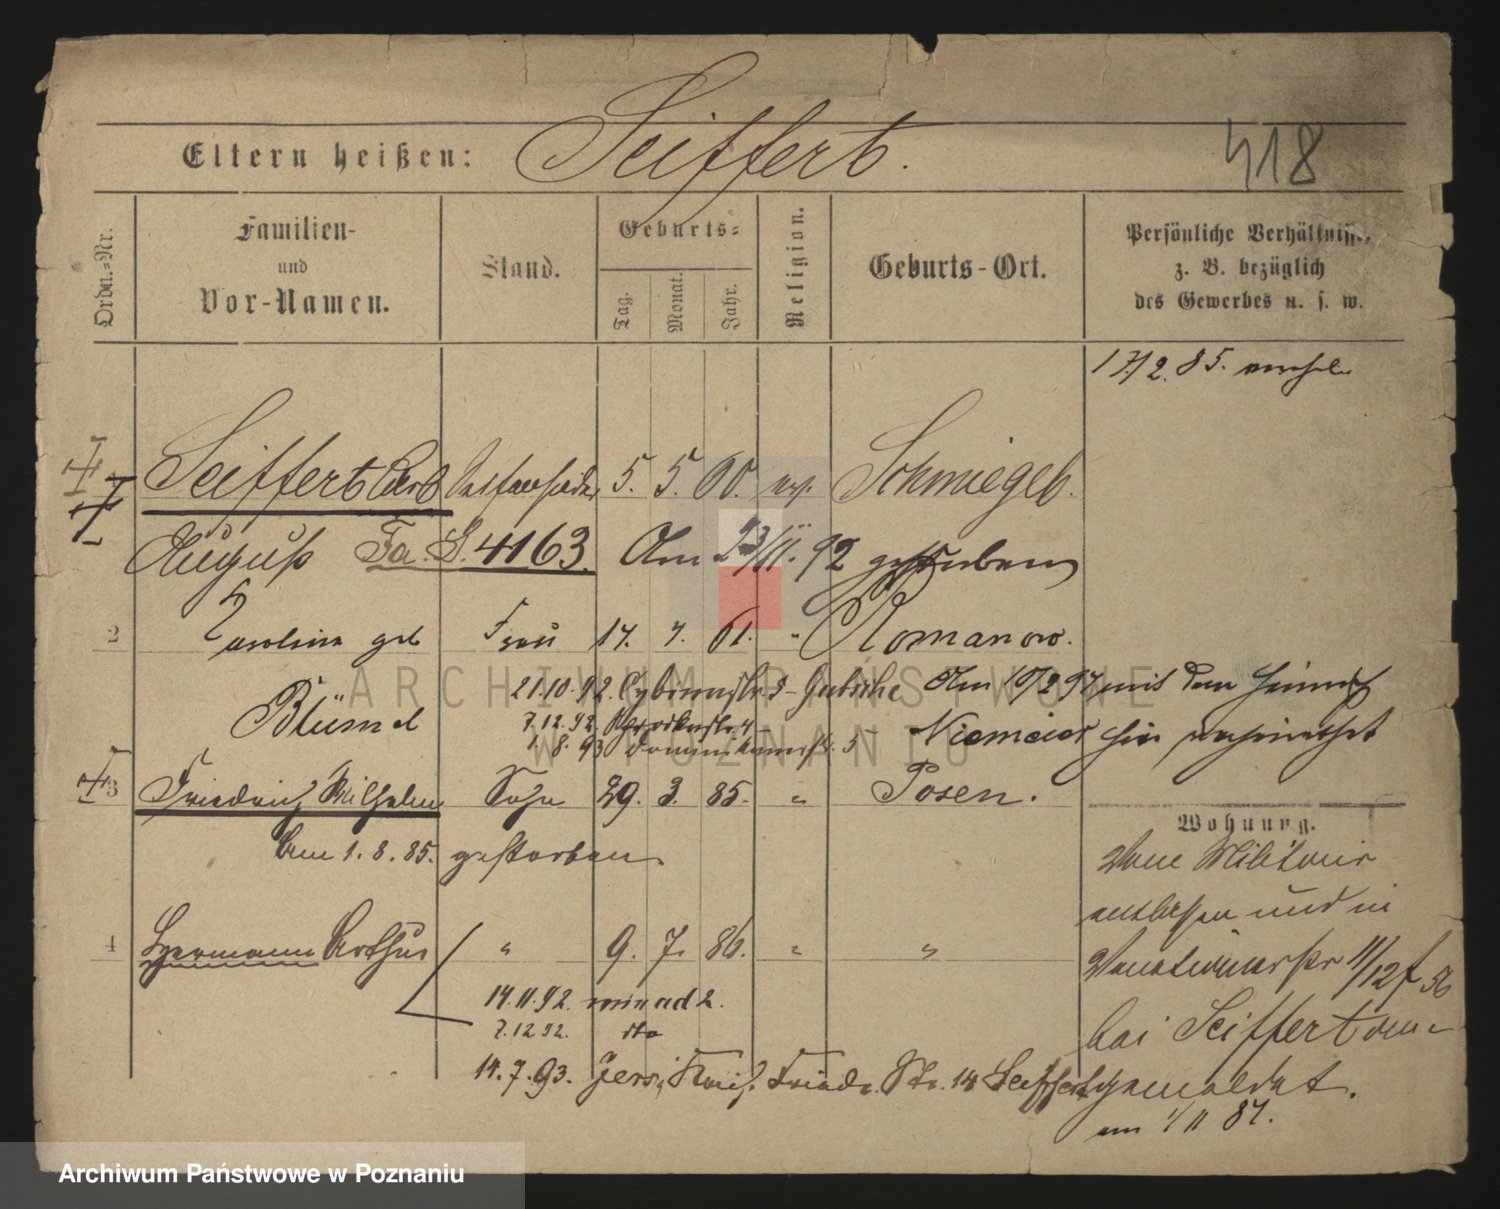 Eltern heißen: Seiffert. 418
Ordn.=Nr.
Familien-
und
Vor-Namen.
Stand.
Geburts=
Tag.
Monat.
Jahr.
Religion.
Geburts-Ort.
Persönliche Verhältnisse,
z. B. bezüglich
des Gewerbes u. s. w.
17/2. 85.
Seiffert Carl 5. 5. 60. ev. Schmiegel.
August Fa. S. 4163. Am 23/11. 92 gestorben
2 Karoline geb Frau 17. 61. " Romanow.
Blümel
21.10.92. Am 10/2 94 mit dem Heinrich
7.12.92.
1. 8. 93 Dominikanerstr. 5 Niemeier hier verheirathet
3 Friedrich Wilhelm Sohn 29. 3. 85. " Posen.
Am 1. 8. 85. gestorben.
Wohnung.
Vom Militair
entlassen und in
4 Hermann Arthur " 9. 7. 86. " "
11/12 f 56
bei Seiffert an-
gemeldet.
am 1/11 87.
14.11.92.
7.12 92. dto
14.7.93. Jersitz Kais. Friedr. Str. 14 Seiffert
ARCHIWUM PAŃSTWOWE
W POZNANIU
Archiwum Państwowe w Poznaniu